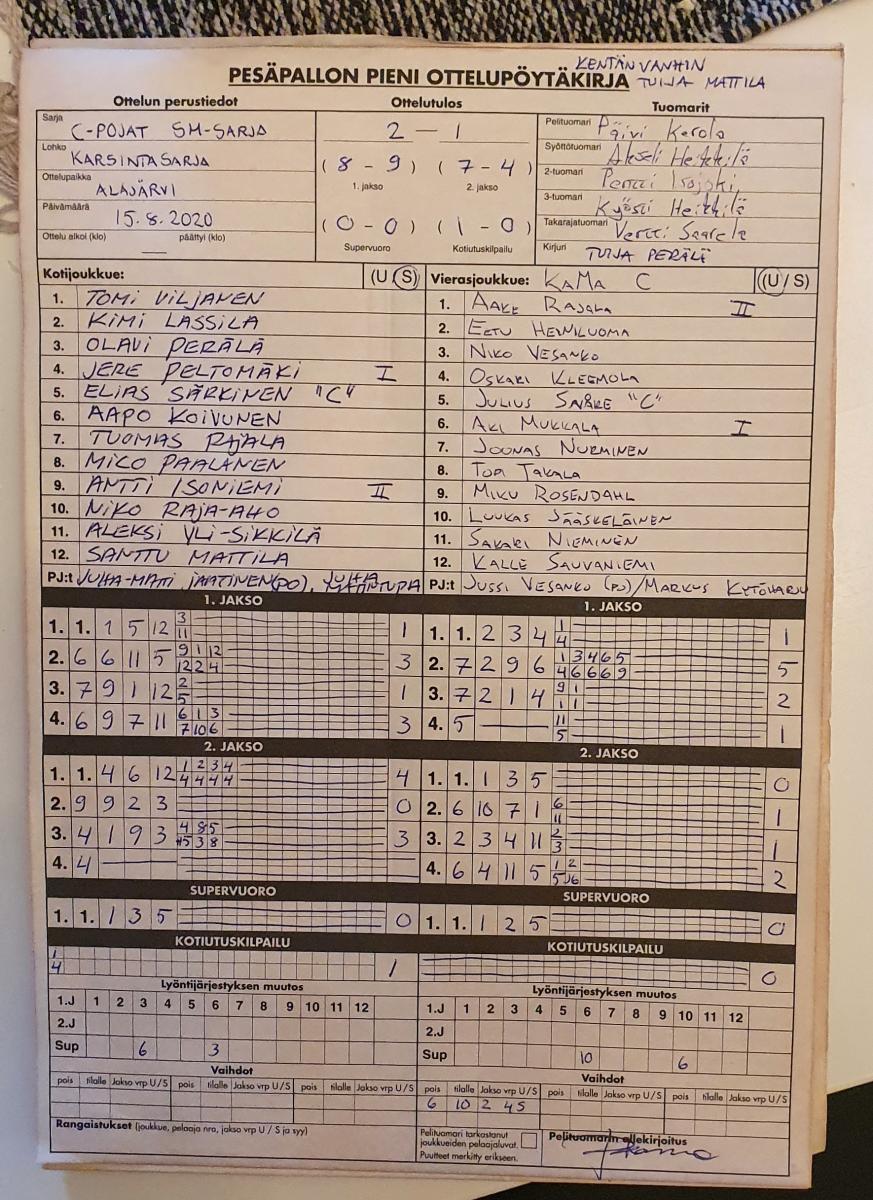 KENTÄN VANHIN
PESÄPALLON PIENI OTTELUPÖYTÄKIRJA TUIJA MATTILA
Ottelun perustiedot
Sarja
C-POJAT SM-SARJA
Lohko
KARSINTASARJA
Ottelupaikka
ALAJÄRVI
Päivämäärä
15.8.2020
Ottelu alkoi (klo) päättyi (klo)
—
Ottelutulos
2 — 1
(8 - 9) (7 - 4)
1. jakso 2. jakso
(0 - 0) (1 - 0)
Supervuoro Kotiutuskilpailu
Tuomarit
Pelituomari Päivi Kerola
Syöttötuomari Akseli Heikkilä
2-tuomari Pertti Isojoki
3-tuomari Kyösti Heikkilä
Takarajatuomari Vertti Saarela
Kirjuri TUIJA PERÄLÄ
Kotijoukkue: (U S)
1. TOMI VILJANEN
2. KIMI LASSILA
3. OLAVI PERÄLÄ
4. JERE PELTOMÄKI I
5. ELIAS SÄRKINEN "C"
6. AAPO KOIVUNEN
7. TUOMAS RAJALA
8. MICO PAALANEN
9. ANTTI ISONIEMI II
10. NIKO RAJA-AHO
11. ALEKSI YLI-SIKKILÄ
12. SANTTU MATTILA
PJ:t JUHA-MATTI JAATINEN (PJ),
Vierasjoukkue: KAMA C (U / S)
1. AAKE RAJALA II
2. EETU HEINILUOMA
3. NIKO VESANKO
4. OSKARI KLEEMOLA
5. JULIUS "C"
6. AKI MUKKALA I
7. JOONAS NURMINEN
8. TOPI TAKALA
9. MIKU ROSENDAHL
10. LUUKAS JÄÄSKELÄINEN
11. SAKARI NIEMINEN
12. KALLE SAUVANIEMI
PJ:t JUSSI VESANKO (PJ) / MARKUS KYTÖHARJU
1. JAKSO
1. 1. 1 5 12 3 1
11
2. 6 6 11 5 9 1 12 3
12 2 4
3. 7 9 1 12 2 1
5
4. 6 9 7 11 6 1 3 3
7 10 6
2. JAKSO
1. 1. 4 6 12 1 2 3 4 4
4 4 4 4
2. 9 9 2 3 0
3. 4 1 9 3 4 8 5 3
5 3 8
4. 4 —
SUPERVUORO
1. 1. 1 3 5 0
KOTIUTUSKILPAILU
1 1
4
Lyöntijärjestyksen muutos
1.J 1 2 3 4 5 6 7 8 9 10 11 12
2.J
Sup 6 3
Vaihdot
pois tilalle Jakso vrp U/S pois tilalle Jakso vrp U/S pois tilalle Jakso vrp U/S
Rangaistukset (joukkue, pelaaja nro, jakso vrp U / S ja syy)
1. JAKSO
1. 1. 2 3 4 1 1
4
2. 7 2 9 6 1 3 4 6 5 5
4 6 6 6 9
3. 7 2 1 4 9 1 2
1 1
4. 5 — 11 1
5
2. JAKSO
1. 1. 1 3 5 0
2. 6 10 7 1 6 1
11
3. 2 3 4 11 2 1
3
4. 6 4 11 5 1 2 2
5 6
SUPERVUORO
1. 1. 1 2 5 0
KOTIUTUSKILPAILU
0
Lyöntijärjestyksen muutos
1.J 1 2 3 4 5 6 7 8 9 10 11 12
2.J
Sup 10 6
Vaihdot
pois tilalle Jakso vrp U/S pois tilalle Jakso vrp U/S pois tilalle Jakso vrp U/S
6 10 2 4S
Pelituomari tarkastanut
joukkueiden pelaajaluvat.
Puutteet merkitty erikseen.
Pelituomarin allekirjoitus